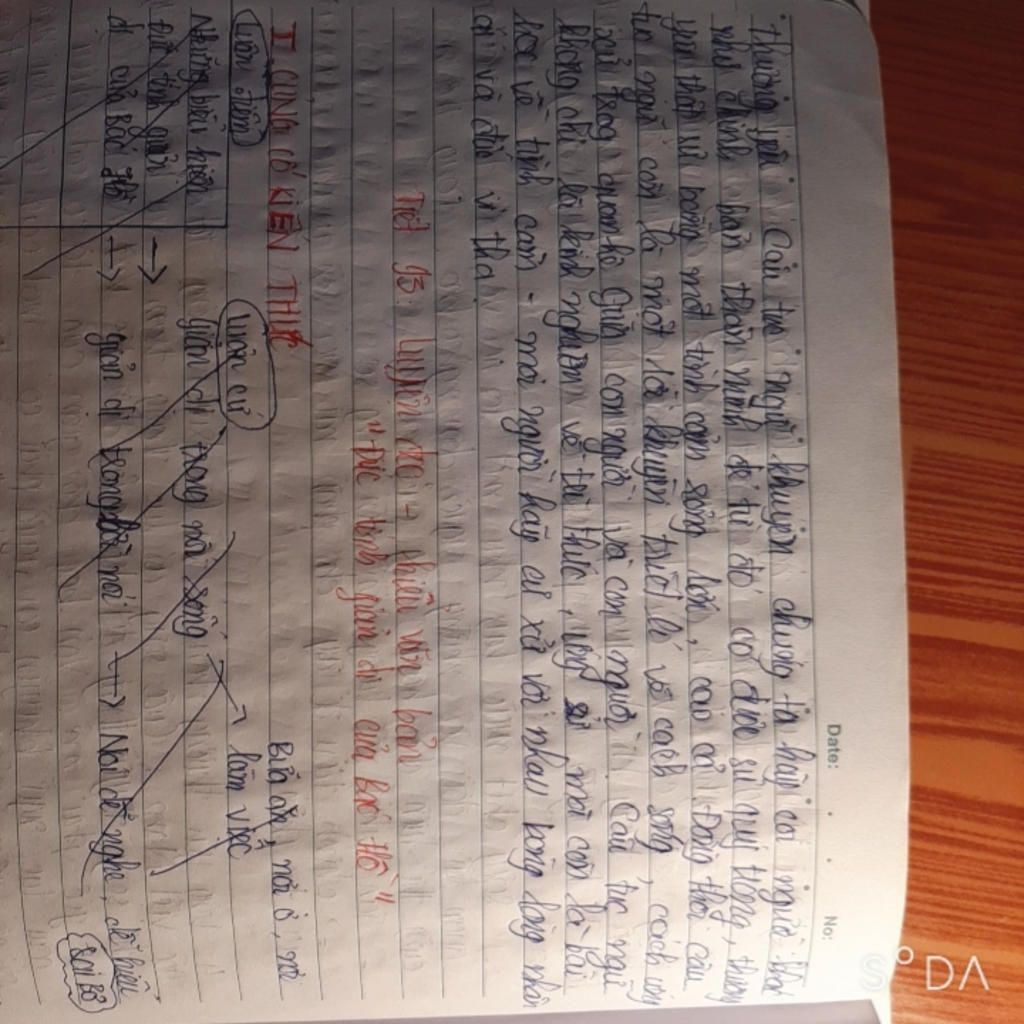 Date:
No:
thương yêu". Câu tục ngữ khuyên chúng ta hãy coi người khác
như chính bản thân mình để từ đó có được sự quý trọng, thương
yêu thật sự bằng một tình cảm sống lớn, cao cả. Đồng thời câu
tục ngữ còn là một lời khuyên triết lí về cách sống, cách ứng
xử trong quan hệ giữa con người và con người. Câu tục ngữ
không chỉ là kinh nghiệm về tri thức, ứng xử mà còn là bài
học về tình cảm - mỗi người hãy cư xử với nhau bằng lòng nhân
ái và đức vị tha.
Tiết 93: Luyện đọc - hiểu văn bản
"Đức tính giản dị của Bác Hồ"
I CỦNG CỐ KIẾN THỨC
Luận điểm
Luận cứ
Bữa ăn, nơi ở, nơi
làm việc
Những biểu hiện
đức tính giản
dị của Bác Hồ
→ giản dị trong lối sống →
→ giản dị trong lời nói → Nói dễ nghe, dễ hiểu
SODA